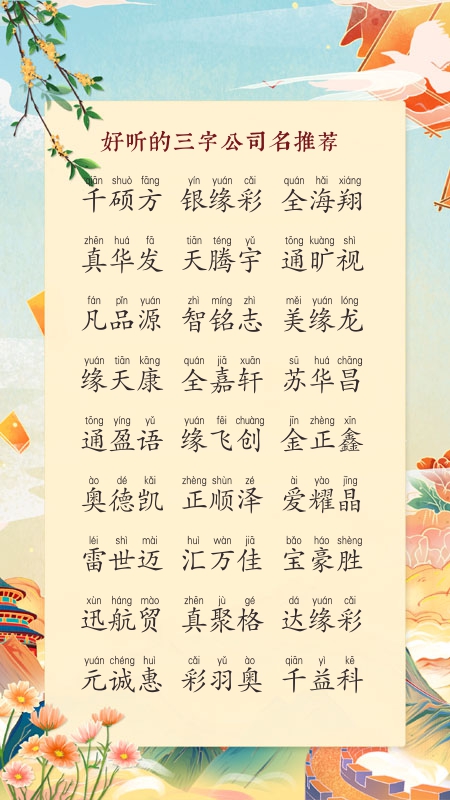 好听的三字公司名推荐
qiān shuò fāng yín yuán cǎi quán hǎi xiáng
千硕方 银缘彩 全海翔
zhēn huá fā tiān téng yǔ tōng kuàng shì
真华发 天腾宇 通旷视
fán pǐn yuán zhì míng zhì měi yuán lóng
凡品源 智铭志 美缘龙
yuán tiān kāng quán jiā xuān sū huá chāng
缘天康 全嘉轩 苏华昌
tōng yíng yǔ yuán fēi chuàng jīn zhèng xīn
通盈语 缘飞创 金正鑫
ào dé kǎi zhèng shùn zé ài yào jīng
奥德凯 正顺泽 爱耀晶
léi shì mài huì wàn jiā bǎo háo shèng
雷世迈 汇万佳 宝豪胜
xùn háng mào zhēn jù gé dá yuán cǎi
迅航贸 真聚格 达缘彩
yuán chéng huì cǎi yǔ ào qiān yì kē
元诚惠 彩羽奥 千益科